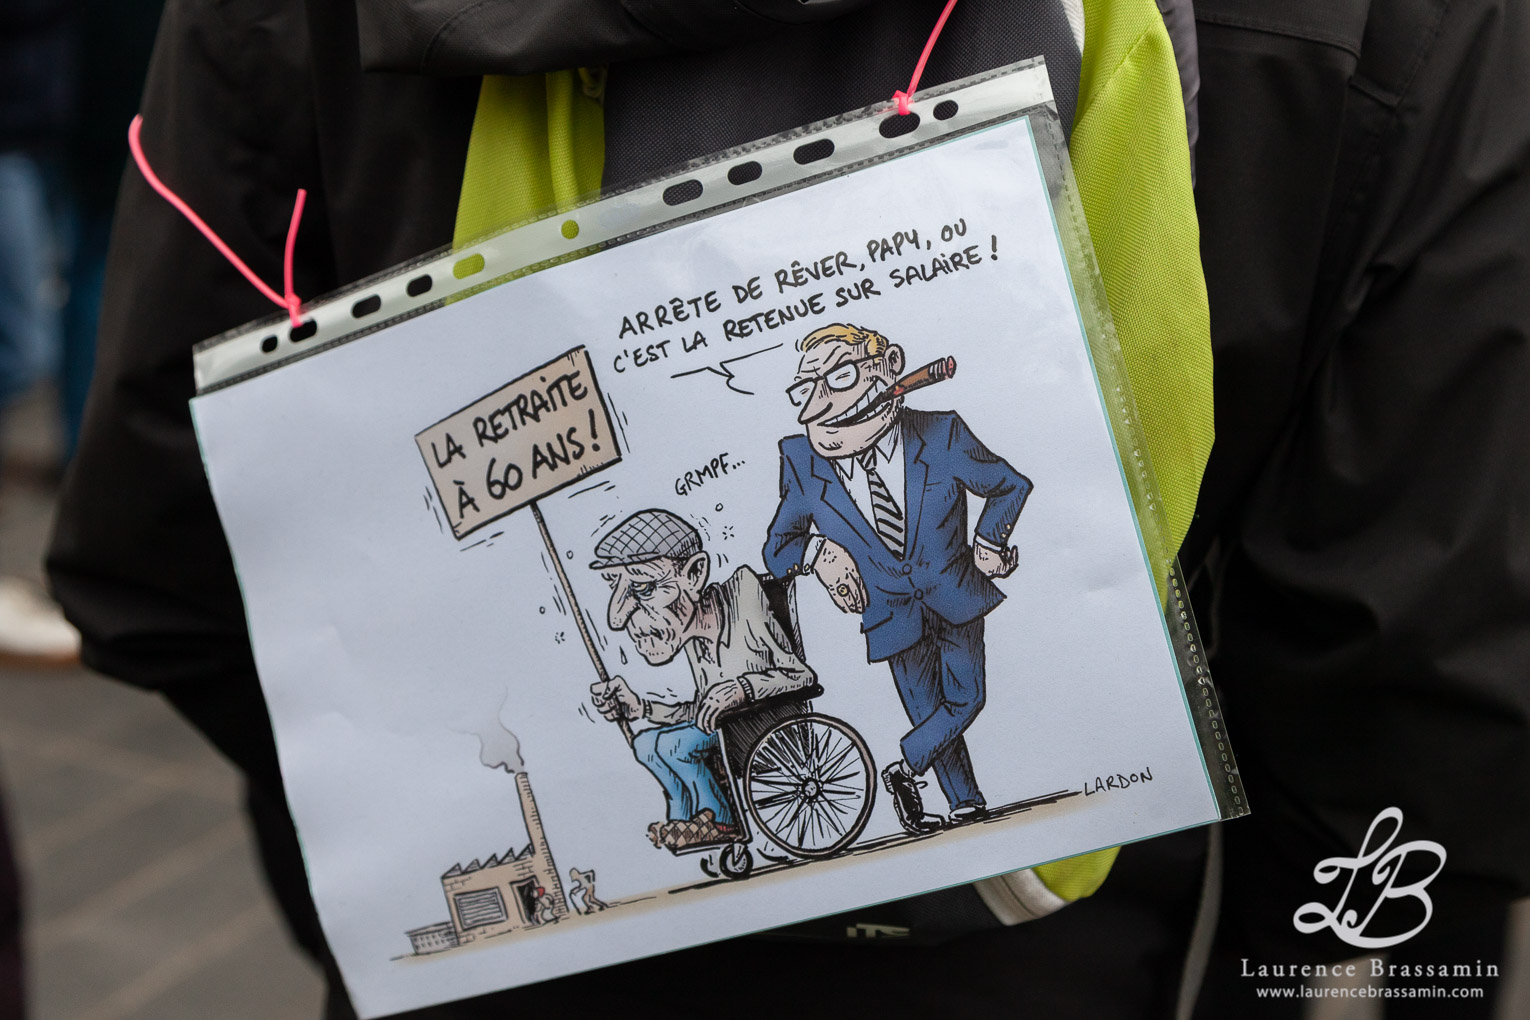 ARRÊTE DE RÊVER, PAPY, OU
C'EST LA RETENUE SUR SALAIRE !
LA RETRAITE
À 60 ANS !
GRMPF...
LARDON
LB
Laurence Brassamin
www.laurencebrassamin.com